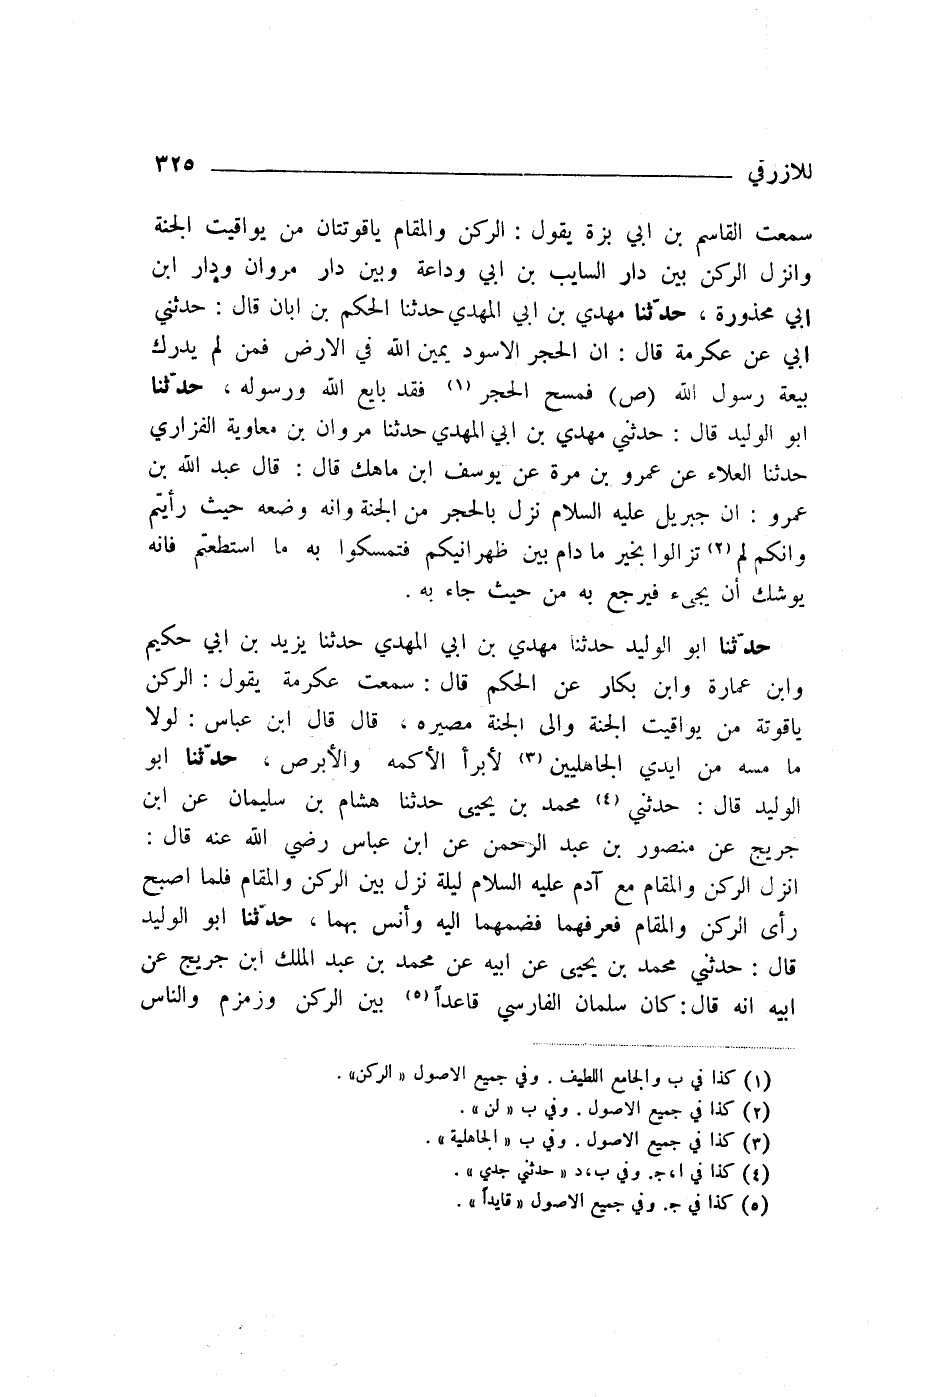 للازرقي ٣٢٥
سمعت القاسم بن ابي بزة يقول : الركن والمقام ياقوتتان من يواقيت الجنة
وانزل الركن بين دار السايب بن ابي وداعة وبين دار مروان ودار ابن
ابي محذورة ، حدّثنا مهدي بن ابي المهدي حدثنا الحكم بن ابان قال : حدثني
ابي عن عكرمة قال : ان الحجر الاسود يمين الله في الارض فمن لم يدرك
بيعة رسول الله (ص) فمسح الحجر (١) فقد بايع الله ورسوله ، حدّثنا
ابو الوليد قال : حدثني مهدي بن ابي المهدي حدثنا مروان بن معاوية الفزاري
حدثنا العلاء عن عمرو بن مرة عن يوسف ابن ماهك قال : قال عبد الله بن
عمرو : ان جبريل عليه السلام نزل بالحجر من الجنة وانه وضعه حيث رأيتم
وانكم لم (٢) تزالوا بخير ما دام بين ظهرانيكم فتمسكوا به ما استطعتم فانه
يوشك أن يجىء فيرجع به من حيث جاء به .
حدّثنا ابو الوليد حدثنا مهدي بن ابي المهدي حدثنا يزيد بن ابي حكيم
وابن عمارة وابن بكار عن الحكم قال : سمعت عكرمة يقول : الركن
ياقوتة من يواقيت الجنة والى الجنة مصيره ، قال قال ابن عباس : لولا
ما مسه من ايدي الجاهليين (٣) لأبرأ الأكمه والأبرص ، حدّثنا ابو
الوليد قال : حدثني (٤) محمد بن يحيى حدثنا هشام بن سليمان عن ابن
جريج عن منصور بن عبد الرحمن عن ابن عباس رضي الله عنه قال :
انزل الركن والمقام مع آدم عليه السلام ليلة نزل بين الركن والمقام فلما اصبح
رأى الركن والمقام فعرفهما فضمهما اليه وأنس بهما ، حدّثنا ابو الوليد
قال : حدثني محمد بن يحيى عن ابيه عن محمد بن عبد الملك ابن جريج عن
ابيه انه قال : كان سلمان الفارسي قاعداً (٥) بين الركن وزمزم والناس
(١) كذا في ب والجامع اللطيف . وفي جميع الاصول « الركن» .
(٢) كذا في جميع الاصول . وفي ب « لن » .
(٣) كذا في جميع الاصول . وفي ب « الجاهلية » .
(٤) كذا في ا ، ج. وفي ب ، د « حدثني جدي » .
(٥) كذا في ج. وفي جميع الاصول « قايداً » .